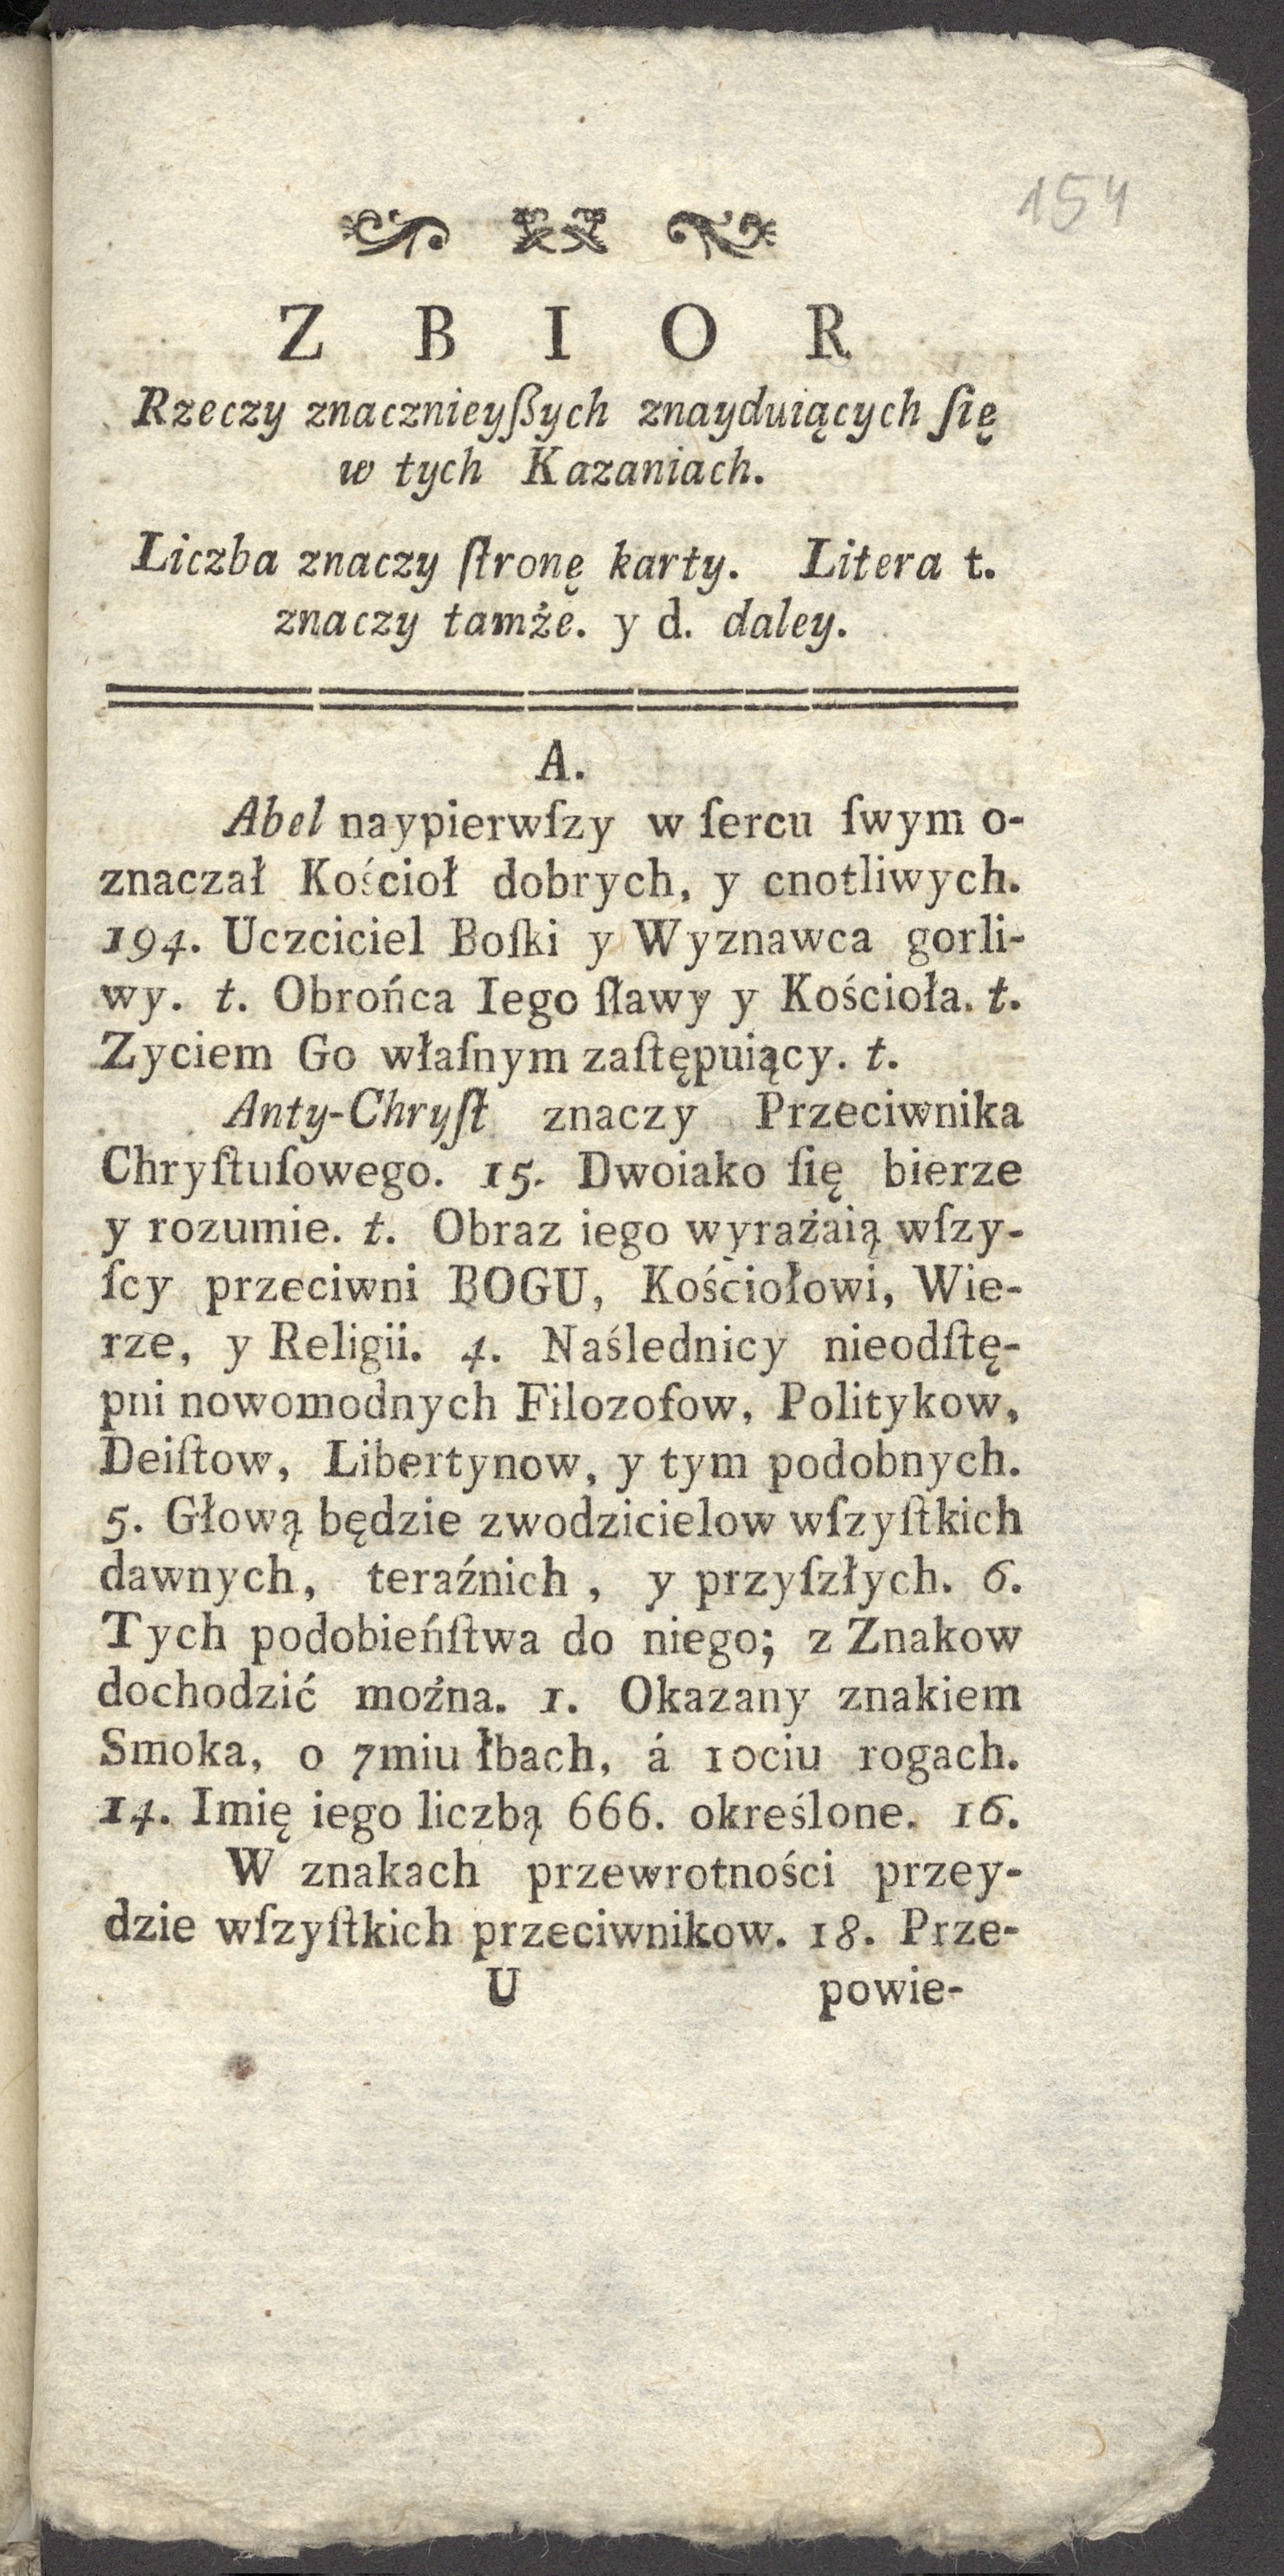 154
Z B I O R
Rzeczy znacznieyßych znayduiących ſię
w tych Kazaniach.
Liczba znaczy ſtronę karty. Litera t.
znaczy tamże. y d. daley.
A.
Abel naypierwſzy w ſercu ſwym o-
znaczał Kościoł dobrych, y cnotliwych.
194. Uczciciel Boſki y Wyznawca gorli-
wy. t. Obrońca Iego ſławy y Kościoła. t.
Zyciem Go właſnym zaſtępuiący. t.
Anty-Chryſt znaczy Przeciwnika
Chryſtuſowego. 15. Dwoiako ſię bierze
y rozumie. t. Obraz iego wyrażaią wſzy-
ſcy przeciwni BOGU, Kościołowi, Wie-
rze, y Religii. 4. Naślednicy nieodſtę-
pni nowomodnych Filozofow, Politykow,
Deiſtow, Libertynow, y tym podobnych.
5. Głową będzie zwodzicielow wſzyſtkich
dawnych, teraźnich, y przyſzłych. 6.
Tych podobieńſtwa do niego; z Znakow
dochodzić można. 1. Okazany znakiem
Smoka, o 7miu łbach, á 10ciu rogach.
14. Imię iego liczbą 666. określone. 16.
W znakach przewrotności przey-
dzie wſzyſtkich przeciwnikow. 18. Prze-
U powie-